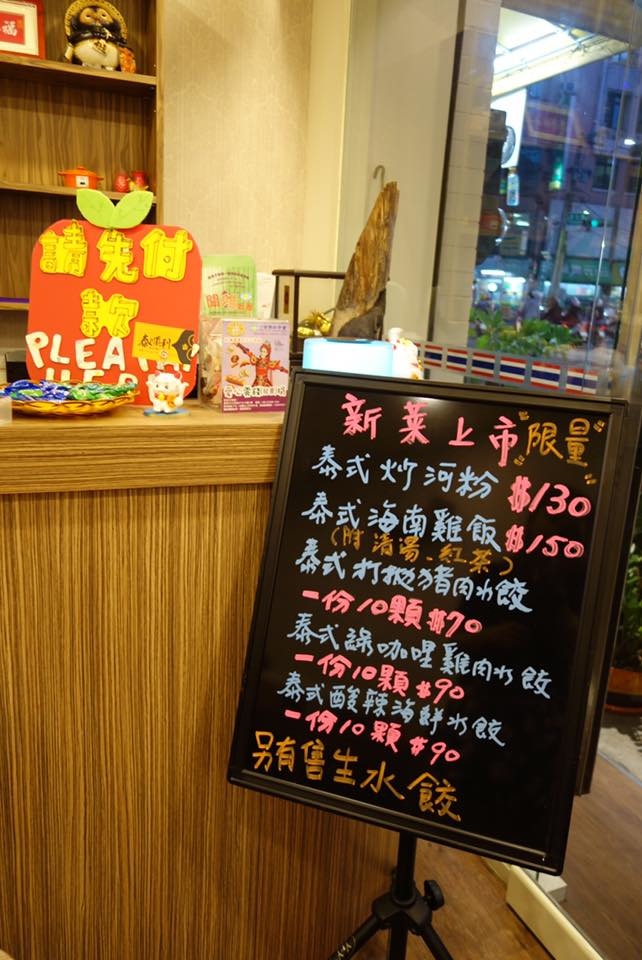 福
請先付
款
PLEA
開幕
愛心
新菜上市"限量"
泰式炒河粉 $130
泰式海南雞飯 $150
(附清湯、紅茶)
泰式打拋猪肉水餃
一份10顆$70
泰式綠咖哩雞肉水餃
一份10顆$90
泰式酸辣海鮮水餃
一份10顆$90
另有售生水餃